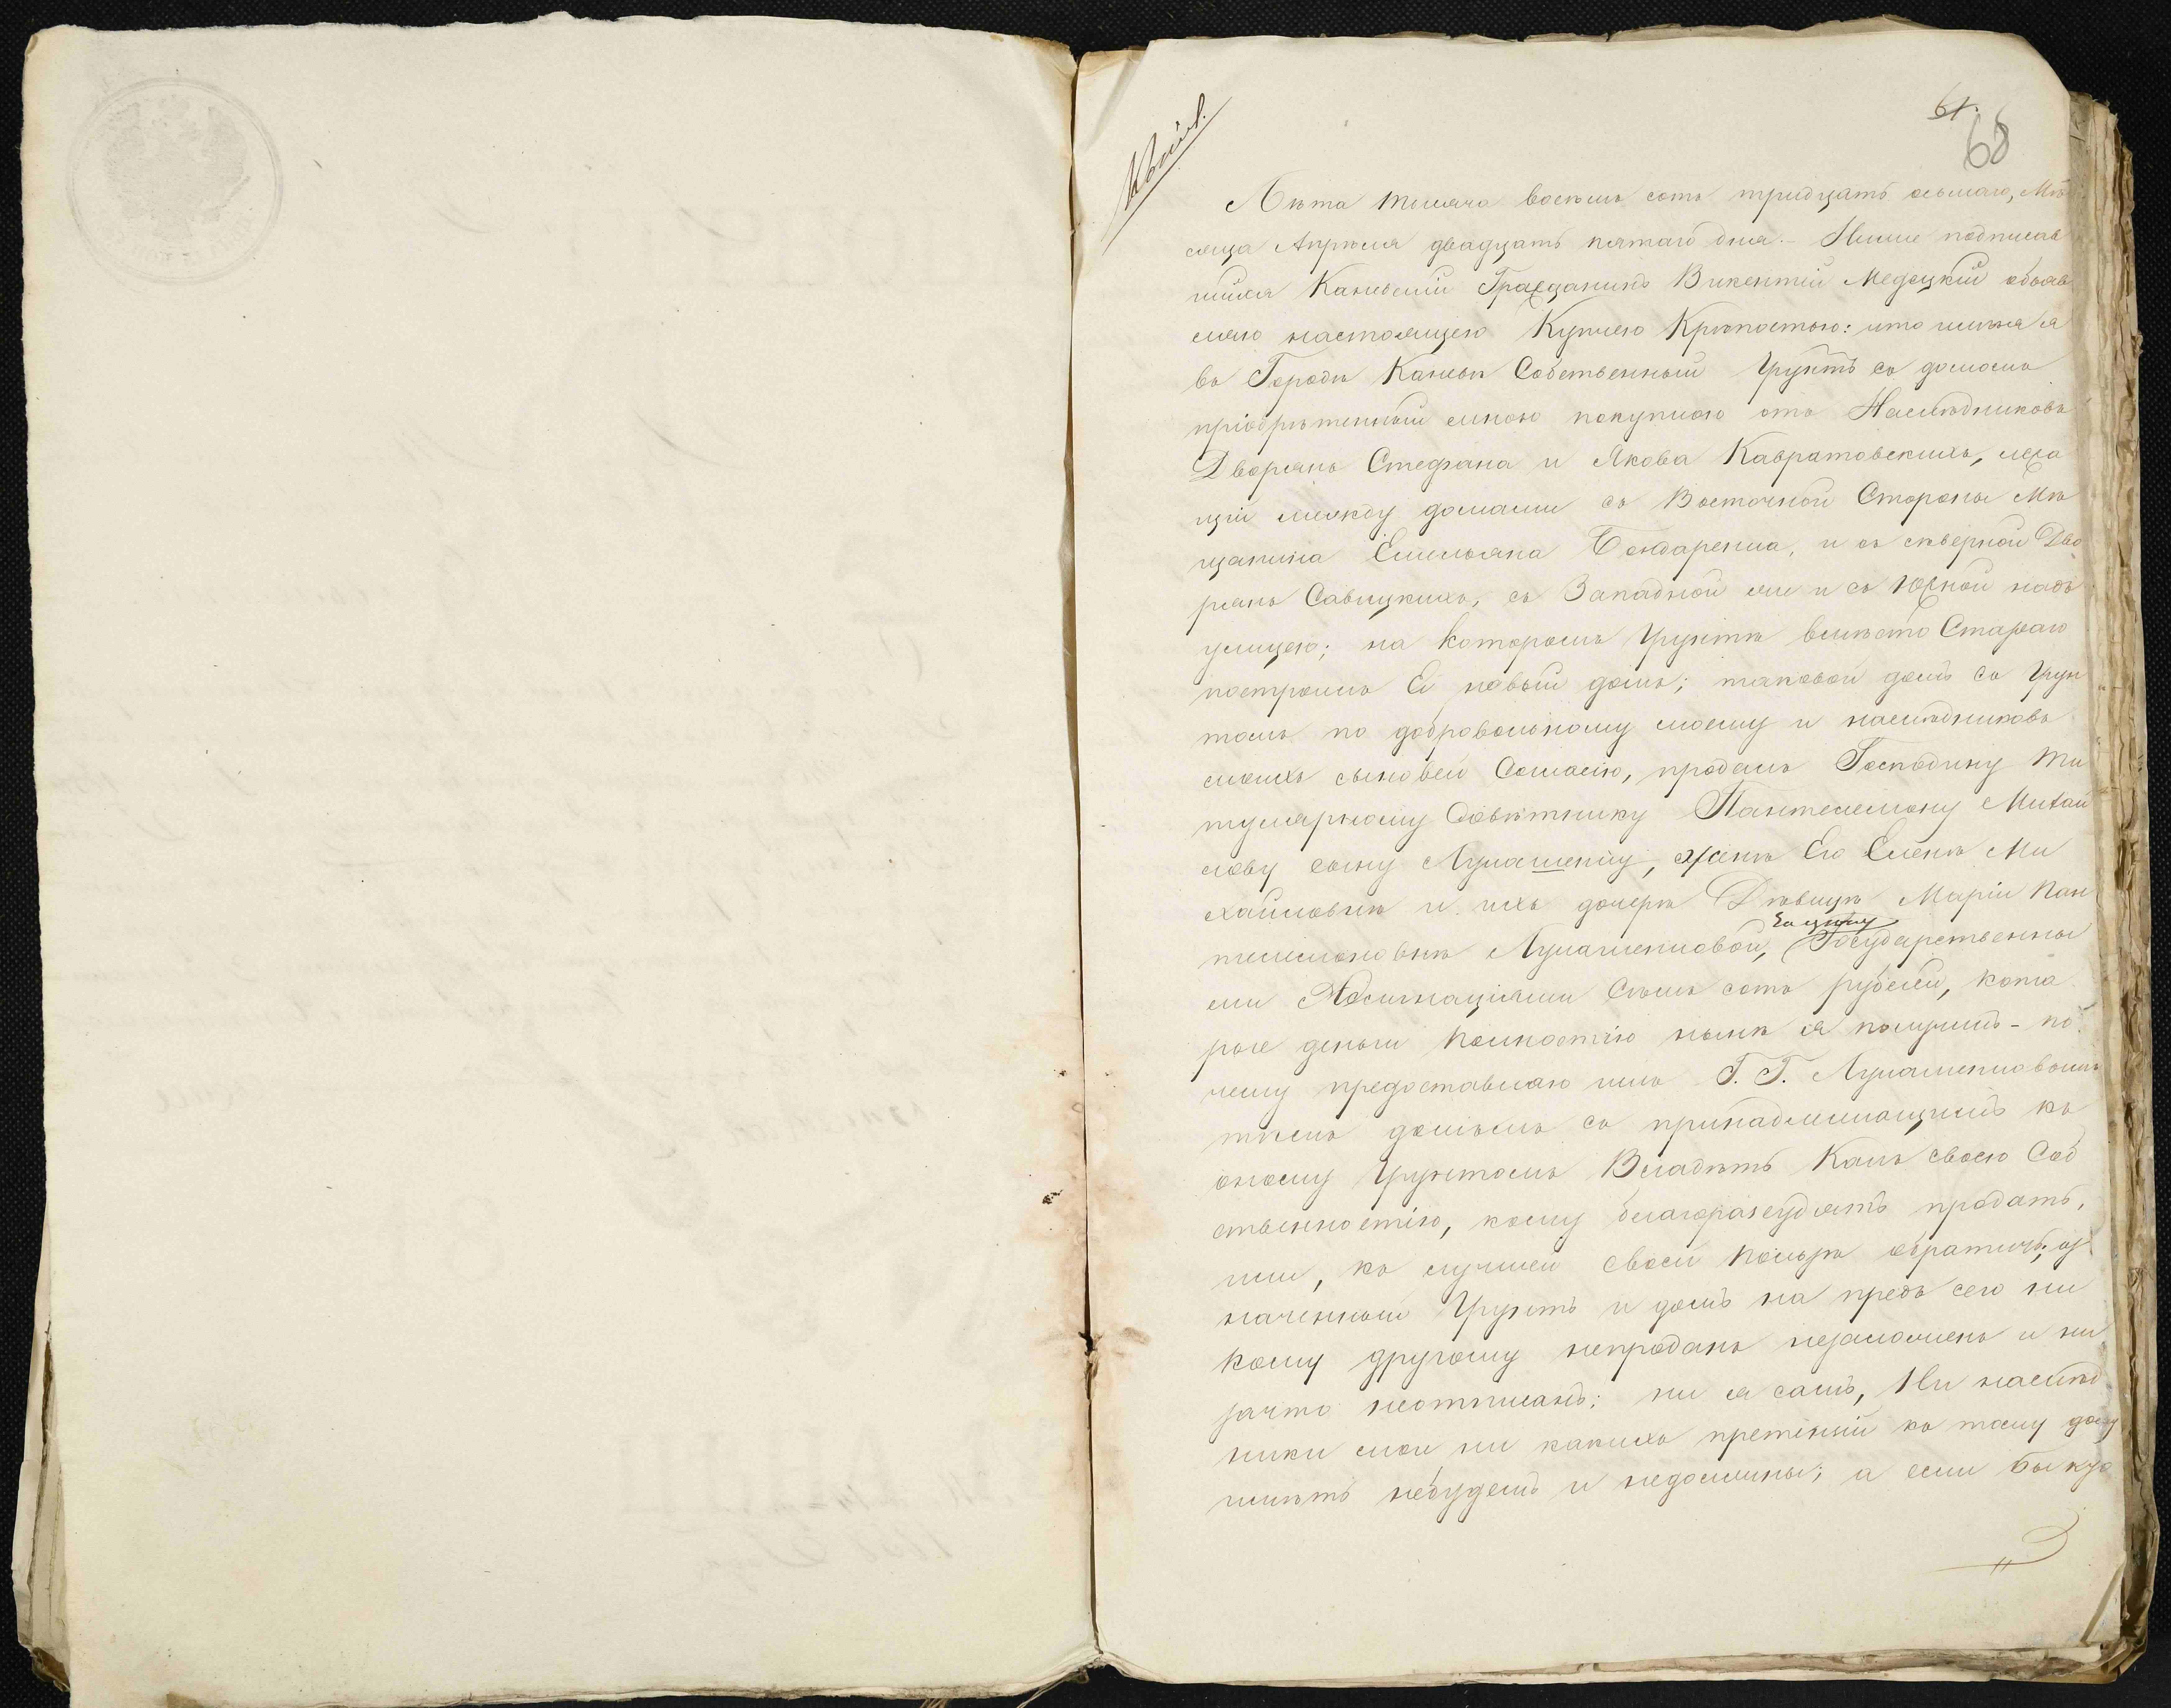 61.
68
Копія.
Лѣта тысяча восемь сотъ тридцать осьмаго, Мѣ
сяца Апрѣля двадцать пятаго дня. – Ниже подписав
шійся Каневскій Гражданинъ Викентій Медецкій объяв
ляю настоящею Купчею Крѣпостью: что имѣя я
въ Городѣ Каневѣ Собственный Грунтъ съ домомъ
пріобрѣтенный мною покупкою отъ Наслѣдниковъ
Дворянъ Стефана и Якова Кавратовскихъ, лежа
щій между домами съ Восточной Стороны Мѣ
щанина Емельяна Бондаренка, и съ сѣверной Дво
рянъ Савицкихъ, съ Западной же и съ Южной надъ
улицею; на которомъ Грунтѣ вмѣсто Стараго
построилъ Я новый домъ; таковой домъ съ Грун
томъ по добровольному моему и наслѣдниковъ
моихъ сыновей Согласію, продалъ Господину Ти
тулярному Совѣтнику Пантелемону Михай
лову сыну Лукашевичу, женѣ Его Еленѣ Ми
хайловнѣ и ихъ дочерѣ Дѣвицѣ Маріи Пан
За цѣну
телемоновнѣ Лукашевичовой, Государственны
ми Ассигнаціями Семь сотъ рублей, кото
рые деньги Полностію нынѣ я получилъ – по
чему предоставляю имъ Г. Г. Лукашевичовымъ
тѣмъ домомъ съ принадлежащимъ къ
оному Грунтомъ Владѣть Какъ своею Соб
ственностію, кому благоразсудятъ продать,
или, къ лучшей своей Пользѣ обратить, оз
наченный Грунтъ и домъ на предъ сего ни
кому другому непроданъ незаложенъ и ни
зачто неотписанъ; ни я самъ, Ни наслѣд
ники мои ни какихъ претензій къ тому дому
имѣть небудемъ и недолжны; а если бы кто